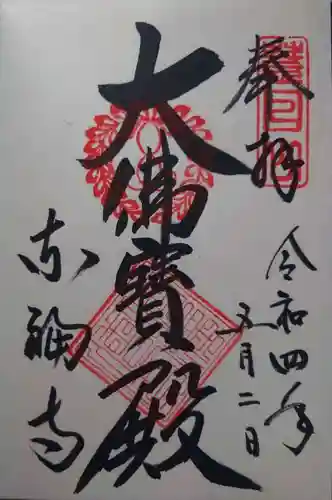 奉拝
令和四年
五月二日
大佛寳殿
东福寺